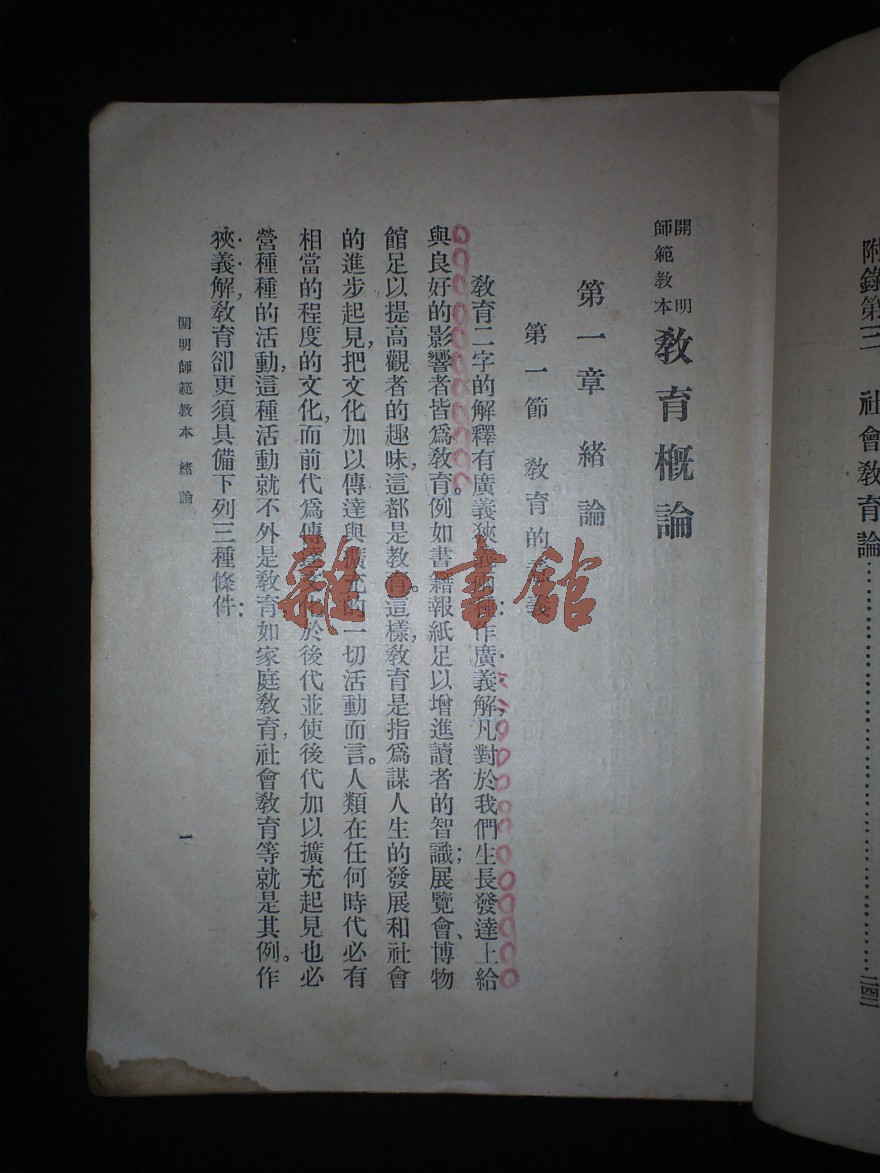 附錄第三 社會教育論……………………………二四二
開明師範教本 教育概論
第一章 緒論
第一節 教育的意義
教育二字的解釋有廣義狹義兩種：作廣義解，凡對於我們生長發達上給
與良好的影響者皆爲教育。例如書籍報紙足以增進讀者的智識；展覽會、博物
館足以提高觀者的趣味，這都是教育。這樣，教育是指爲謀人生的發展和社會
的進步起見，把文化加以傳達與擴充的一切活動而言。人類在任何時代必有
相當的程度的文化，而前代爲傳達文化於後代並使後代加以擴充起見也必
營種種的活動，這種活動就不外是教育，如家庭教育，社會教育等就是其例。作
狹義解，教育卻更須具備下列三種條件：
開明師範教本 緒論
一
雜·書館